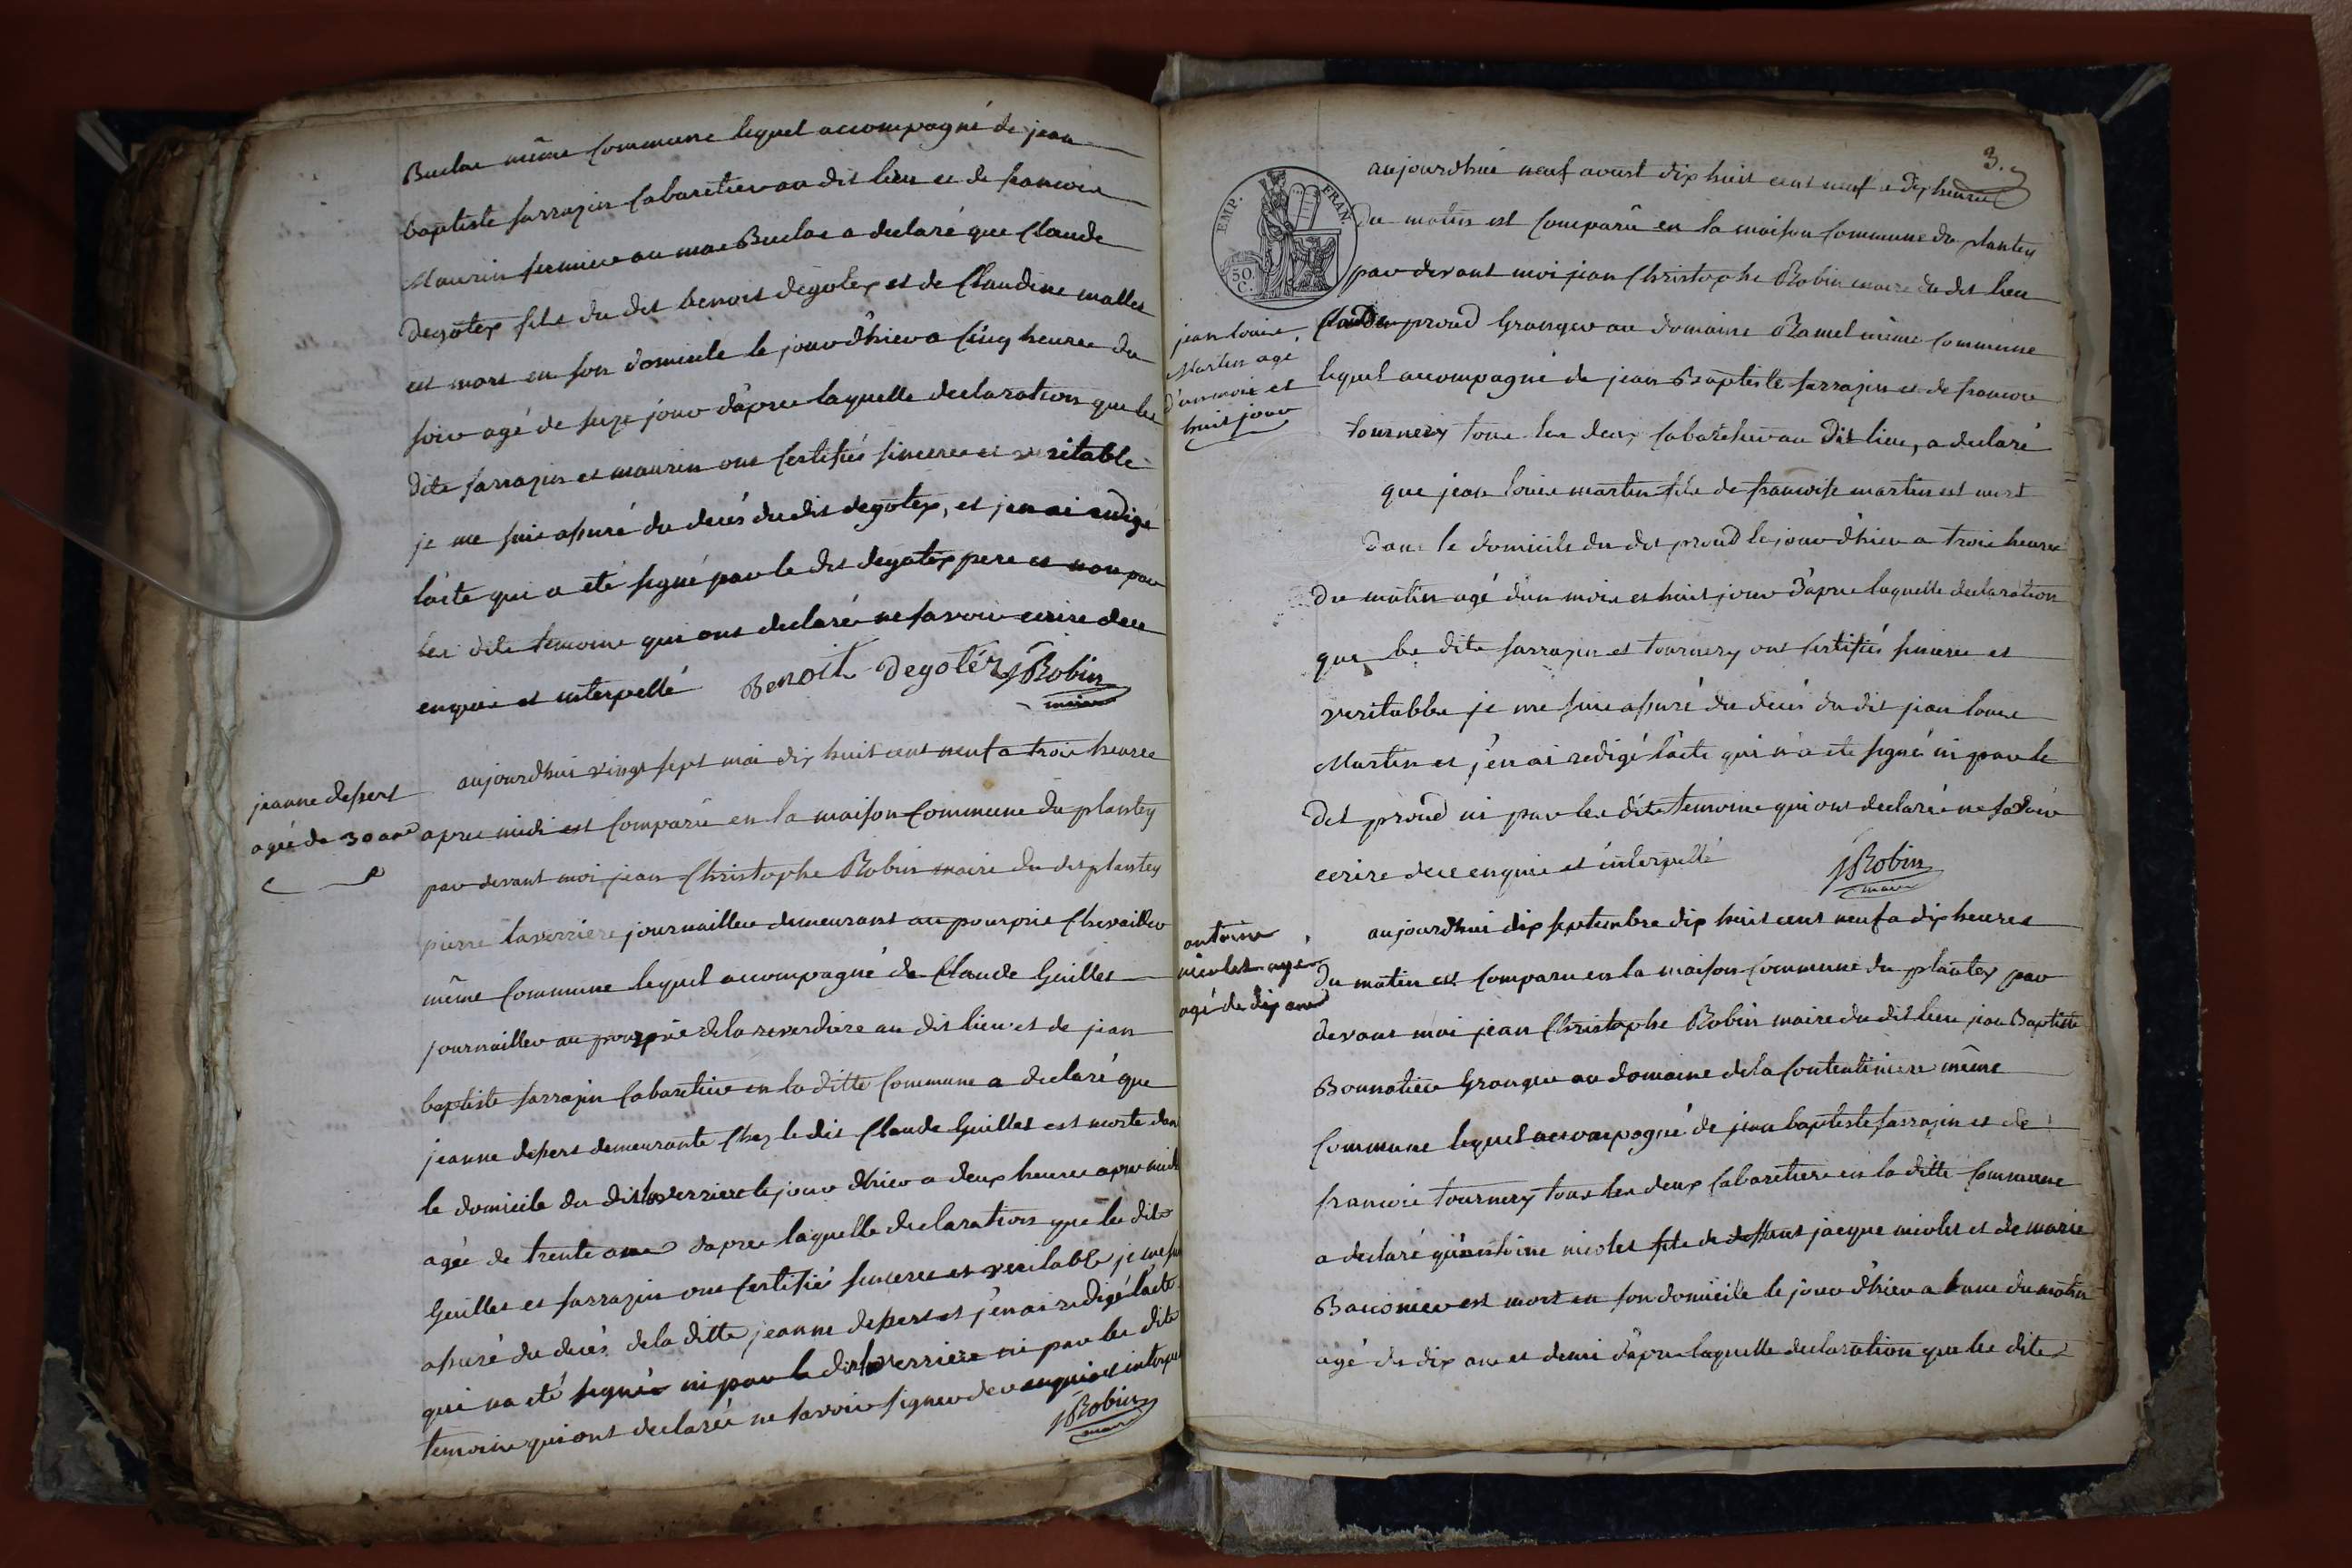 Buclas même Commune lequel accompagné de jean
baptiste sarrazin Cabaretier au dit lieu et de francois
Maurin fermier au mas Buclas a declaré que Claude
Degotex fils du dit benoit degotex et de Claudine
est mort en son domicile le jour d'hier a cinq heures du
soir agé de seize jour d'apres laquelle declaration que les
dits sarrazin et maurin ont certifiés sinceres et veritable
je me suis assuré du decés du dit degotex, et j'en ai redigé
l'acte qui a eté signé par le dit degotex pere et non par
les dits temoins qui ont declaré ne savoir ecrire de ce
enquis et interpellé Benoit Degotéx JRobin
maire
jeanne dessert
agée de 30 ans
aujourdhui vingt sept mai dix huit cent neuf a trois heures
apres midi est Comparû en la maison Commune du plantey
par devant moi jean Christophe Robin maire du dit plantey
pierre laverriere journaillier demeurant au pourprix Chevaillier
même Commune lequel accompagné de Claude Guillet
journaillier au pourprix de la reverdiere au dit lieu et de jean
baptiste sarrazin Cabaretier en la ditte Commune a declaré que
jeanne dessert demeurante Chez le dit Claude Guillet est morte dans
le domicile du dit laverriere le jour d'hier a deux heures apres midi
agée de trente ans d'apres laquelle declaration que les dits
Guillet et sarrazin ont certifiés sinceres et veritable je me suis
assuré du decés de la ditte jeanne dessert et j'en ai redigé l'acte
qui n'a eté signé ni par le dit laverriere ni par les dits
temoins qui ont declarés ne savoir signer de ce enquis et interpellé
JRobin
maire
3.
EMP. FRAN.
50. C.
jean louis
Martin agé
d'un mois et
huit jour
aujourdhui neuf aoust dix huit cent neuf a dix heures
du matin est Comparû en la maison Commune du plantey
par devant moi jean Christophe Robin maire du dit lieu
Claude proud Granger au domaine Ramel même Commune
lequel accompagné de jean Baptiste sarrazin et de francois
tournery tous les deux Cabaretier au Dit lieu, a declaré
que jean louis martin fils de francoise martin est mort
dans le domicile du dit proud le jour d'hier a trois heures
du matin agé d'un mois et huit jour d'apres laquelle declaration
que les dits sarrazin et tournery ont certifiés sinceres et
veritables je me suis assuré du decés du dit jean louis
Martin et j'en ai redigé l'acte qui n'a eté signé ni par le
dit proud ni par les dits temoins qui ont declarés ne savoir
ecrire de ce enquis et interpellé JRobin
maire
antoine
nicolet
agé de dix ans
aujourdhui dix septembre dix huit cent neuf a dix heures
du matin est Comparu en la maison Commune du plantey par
devant moi jean Christophe Robin maire du dit lieu jean Baptiste
Bonnatier Granger au domaine de la Contentiniere même
Commune lequel accompagné de jean baptiste sarrazin et de
francois tournery tous les deux Cabaretiers en la ditte Commune
a declaré qu'antoine nicolet fils de deffunt jacque nicolet et de marie
Baconier est mort en son domicile le jour d'hier a une du matin
agé de dix ans et demi d'apres laquelle declaration que les dits